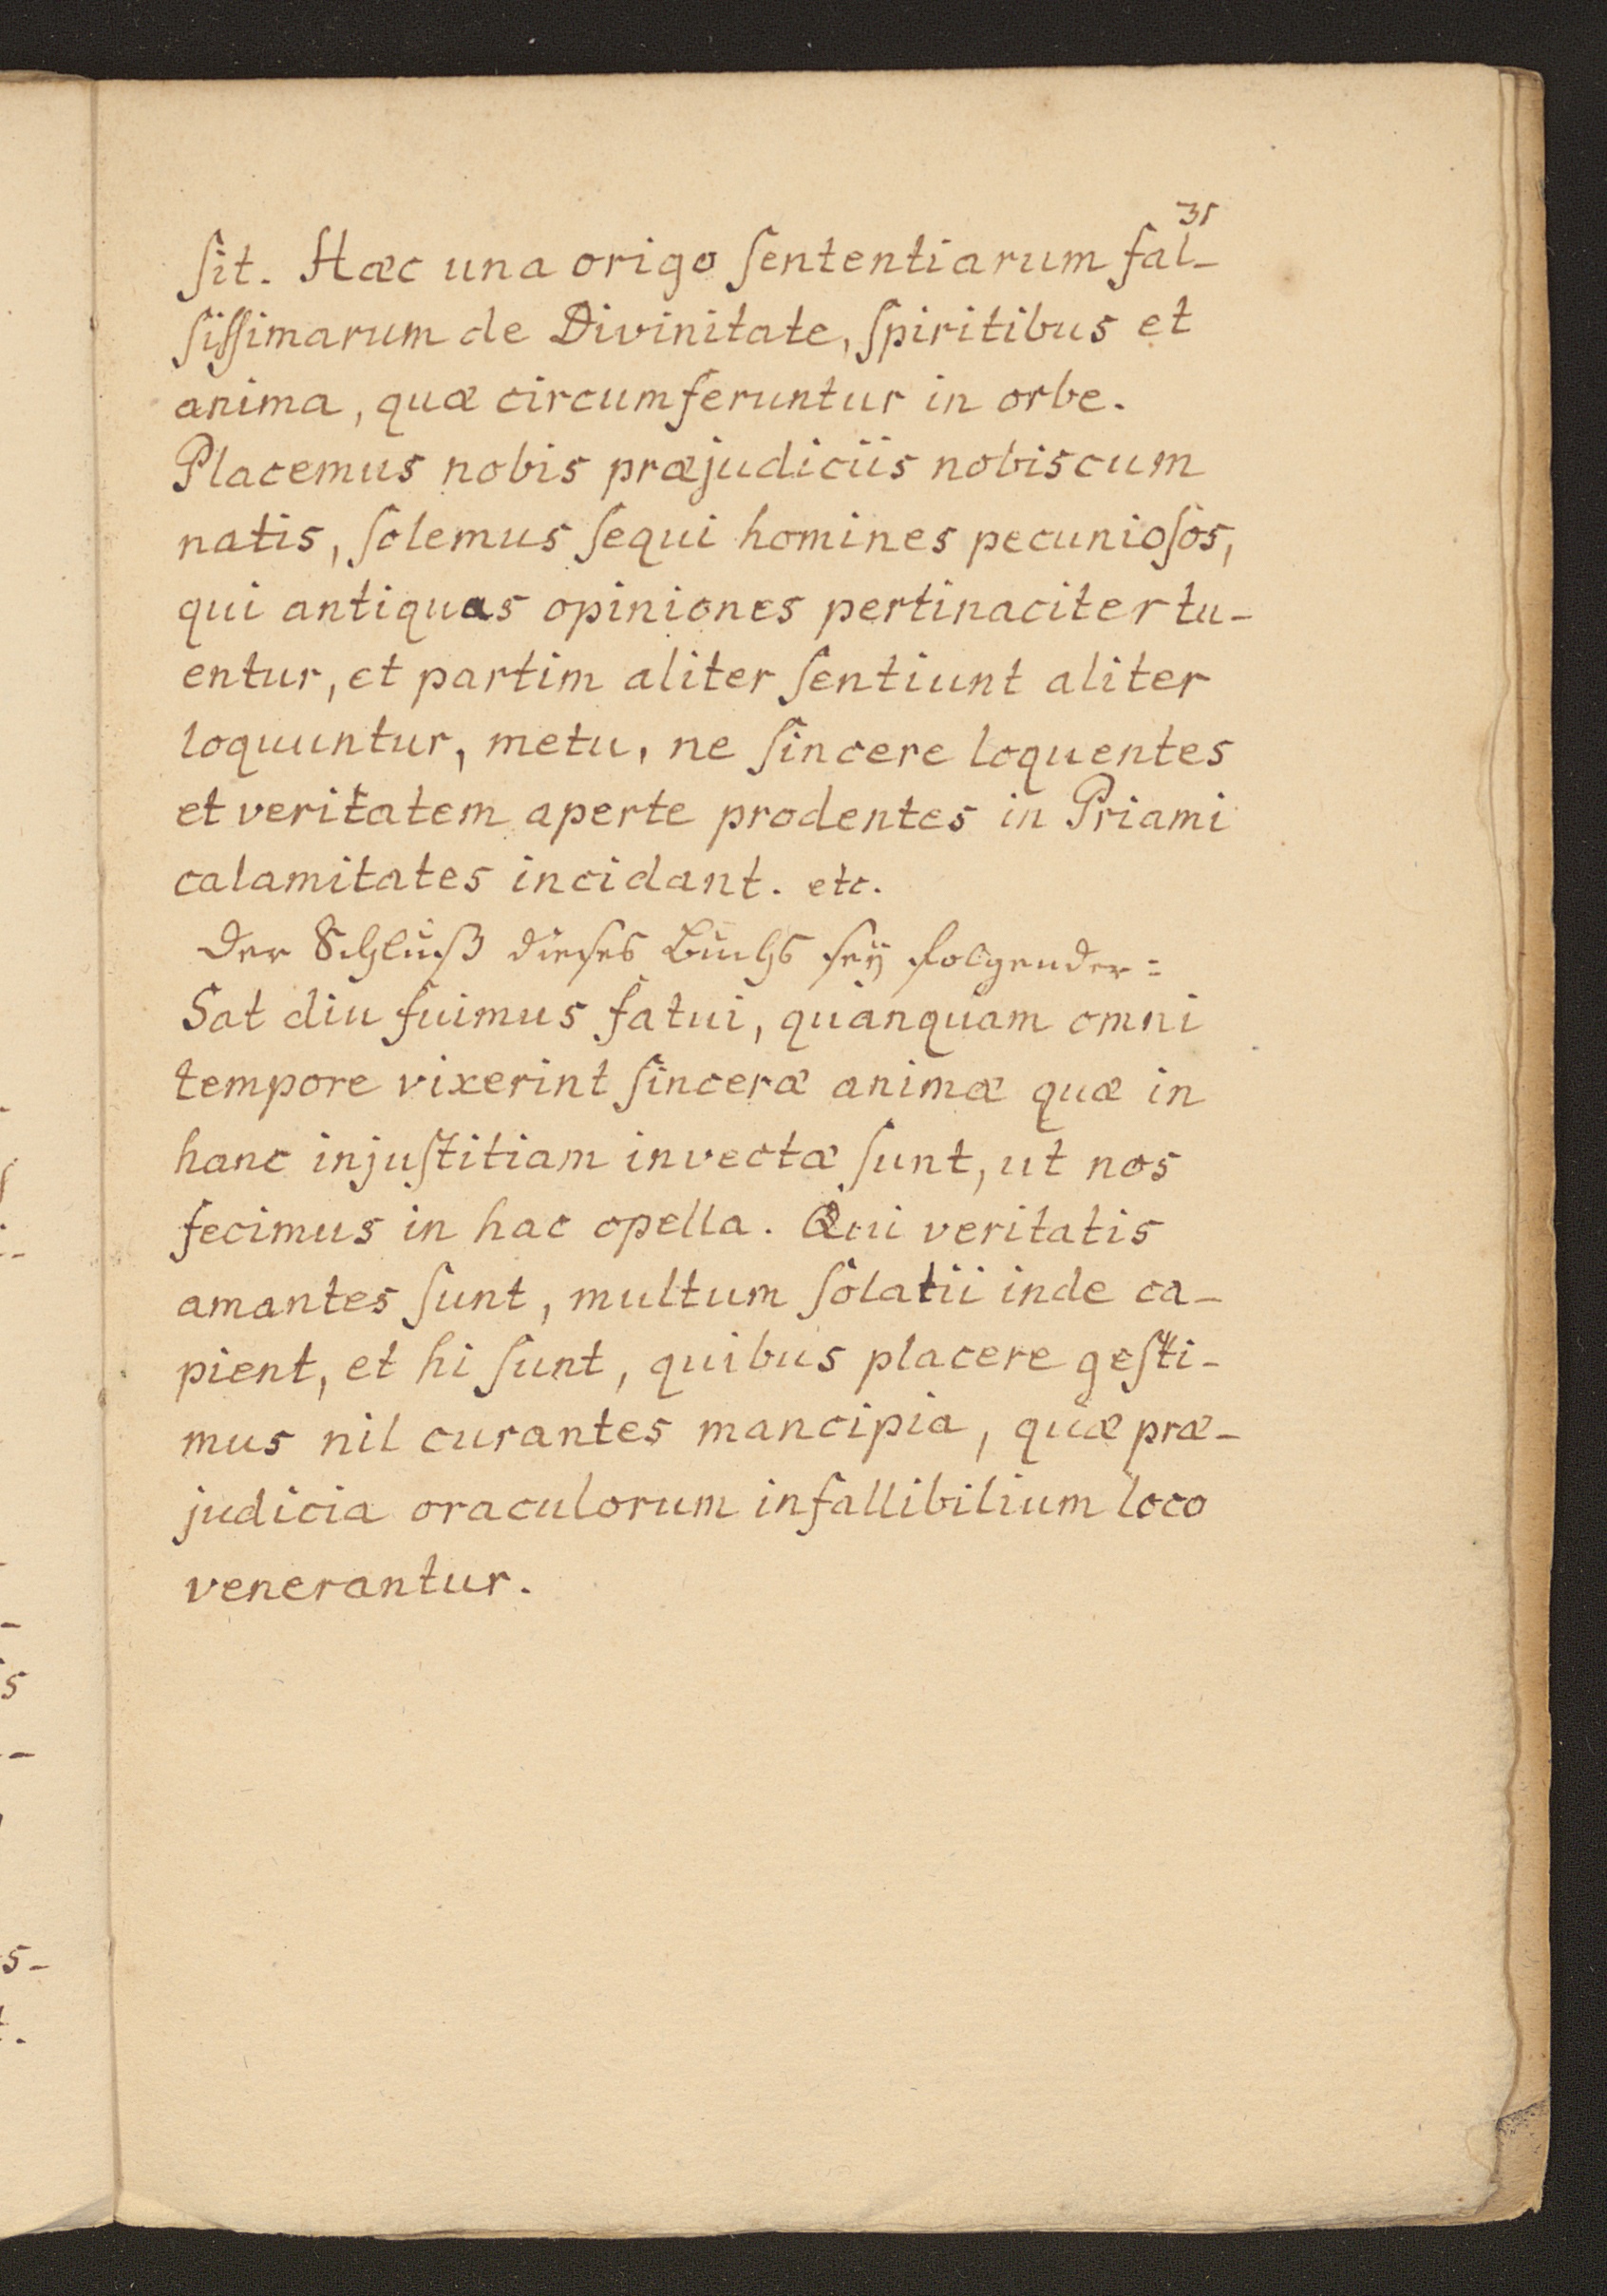 35
ſit. Hæc una origo ſententiarum fal-
ſiſſimarum de Divinitate, ſpiritibus et
anima, quæ circumferuntur in orbe.
Placemus nobis præjudiciis nobiscum
natis, ſolemus ſequi homines pecunioſos,
qui antiquas opiniones pertinaciter tu-
entur, et partim aliter ſentiunt aliter
loquuntur, metu, ne ſincere loquentes
et veritatem aperte prodentes in Priami
calamitates incidant. etc.
Der Schluß dieſes Buchs ſeÿ folgender:
Sat diu fuimus fatui, quanquam omni
tempore vixerint ſinceræ animæ quæ in
hanc injuſtitiam invectæ ſunt, ut nos
fecimus in hac opella. Qui veritatis
amantes ſunt, multum ſolatii inde ca-
pient, et hi ſunt, quibus placere geſti-
mus nil curantes mancipia, quæ præ-
judicia oraculorum infallibilium loco
venerantur.